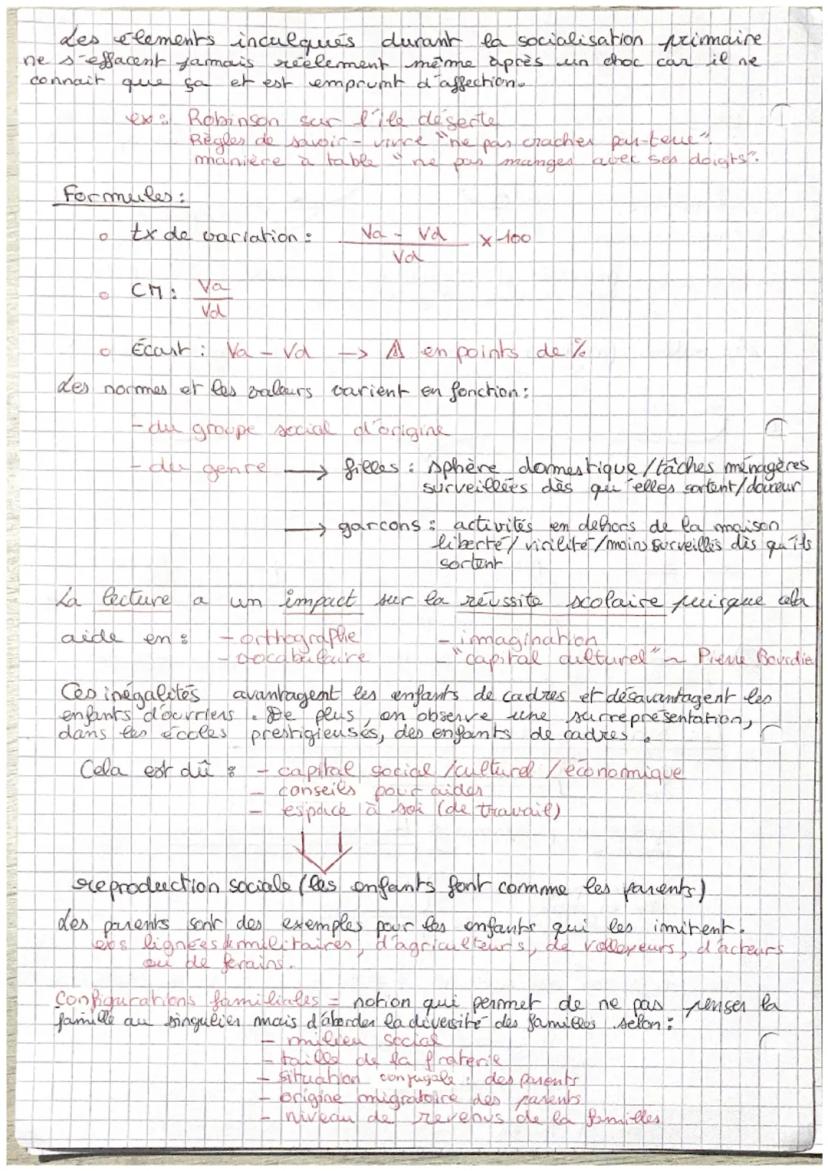 Les élements inculqués durant la socialisation primaire
ne s'effacent jamais réelement même après un choc car il ne
connait que ça et est emprumt d'affection.
ex : Robinson sur l'île déserte
Règles de savoir-vivre "ne pas cracher par-terre".
manière à table "ne pas manger avec ses doigts".
Formules :
o tx de variation : Va - Vd / Vd x 100
o CM : Va / Vd
o Écart : Va - Vd -> ⚠ en points de %
Les normes et les valeurs varient en fonction :
- du groupe social d'origine
- du genre → filles : sphère domestique / tâches ménagères
surveillées dès qu'elles sortent / douceur
→ garcons : activités en dehors de la maison
liberté / virilité / moins surveillés dès qu'ils
sortent
La lecture a un impact sur la réussite scolaire puisque cela
aide en : - orthographe - imagination
- vocabulaire - "capital culturel" ~ Pierre Bourdie
Ces inégalités avantagent les enfants de cadres et désavantagent les
enfants d'ouvriers. De plus, on observe une surreprésentation,
dans les écoles prestigieuses, des enfants de cadres.
Cela est dû : - capital social / culturel / économique
- conseils pour aider
- espace à soi (de travail)
reproduction sociale (les enfants font comme les parents)
Les parents sont des exemples pour les enfants qui les imitent.
ex : lignées militaires, d'agriculteurs, de volleyeurs, d'acteurs
ou de forains.
Configurations familiales = notion qui permet de ne pas penser la
famille au singulier mais d'aborder la diversité des familles selon :
- milieu social
- taille de la fraterie
- situation conjugale des parents
- origine migratoire des parents
- niveau de revenus de la familles